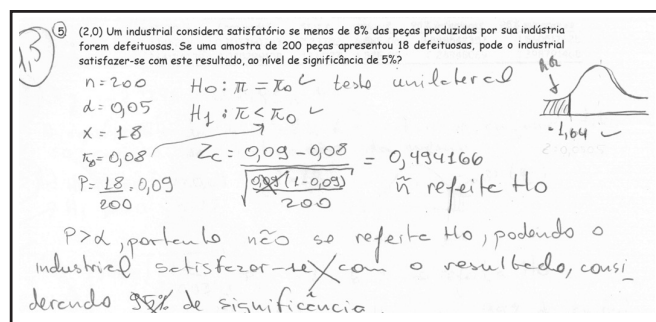 1,3
5 (2,0) Um industrial considera satisfatório se menos de 8% das peças produzidas por sua indústria
forem defeituosas. Se uma amostra de 200 peças apresentou 18 defeituosas, pode o industrial
satisfazer-se com este resultado, ao nível de significância de 5%?
n = 200
H0 : π = π0 teste unilateral
α = 0,05
H1 : π < π0
x = 18
-1,64
π0 = 0,08
Zc = 0,09 - 0,08 = 0,494166
P = 18 = 0,09
0,09 (1 - 0,09)
ñ refeita H0
200
200
P > α, portanto não se refeita H0, podendo o
industrial satisfazer-se com o resultado, consi
derando 95% de significância.